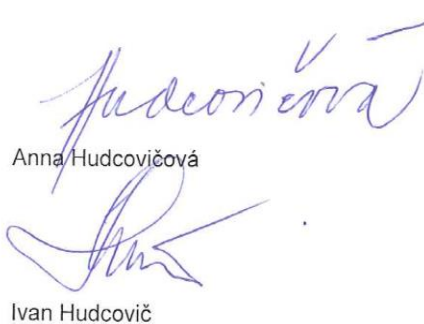 Hudcovičová
Anna Hudcovičová
Ivan Hudcovič